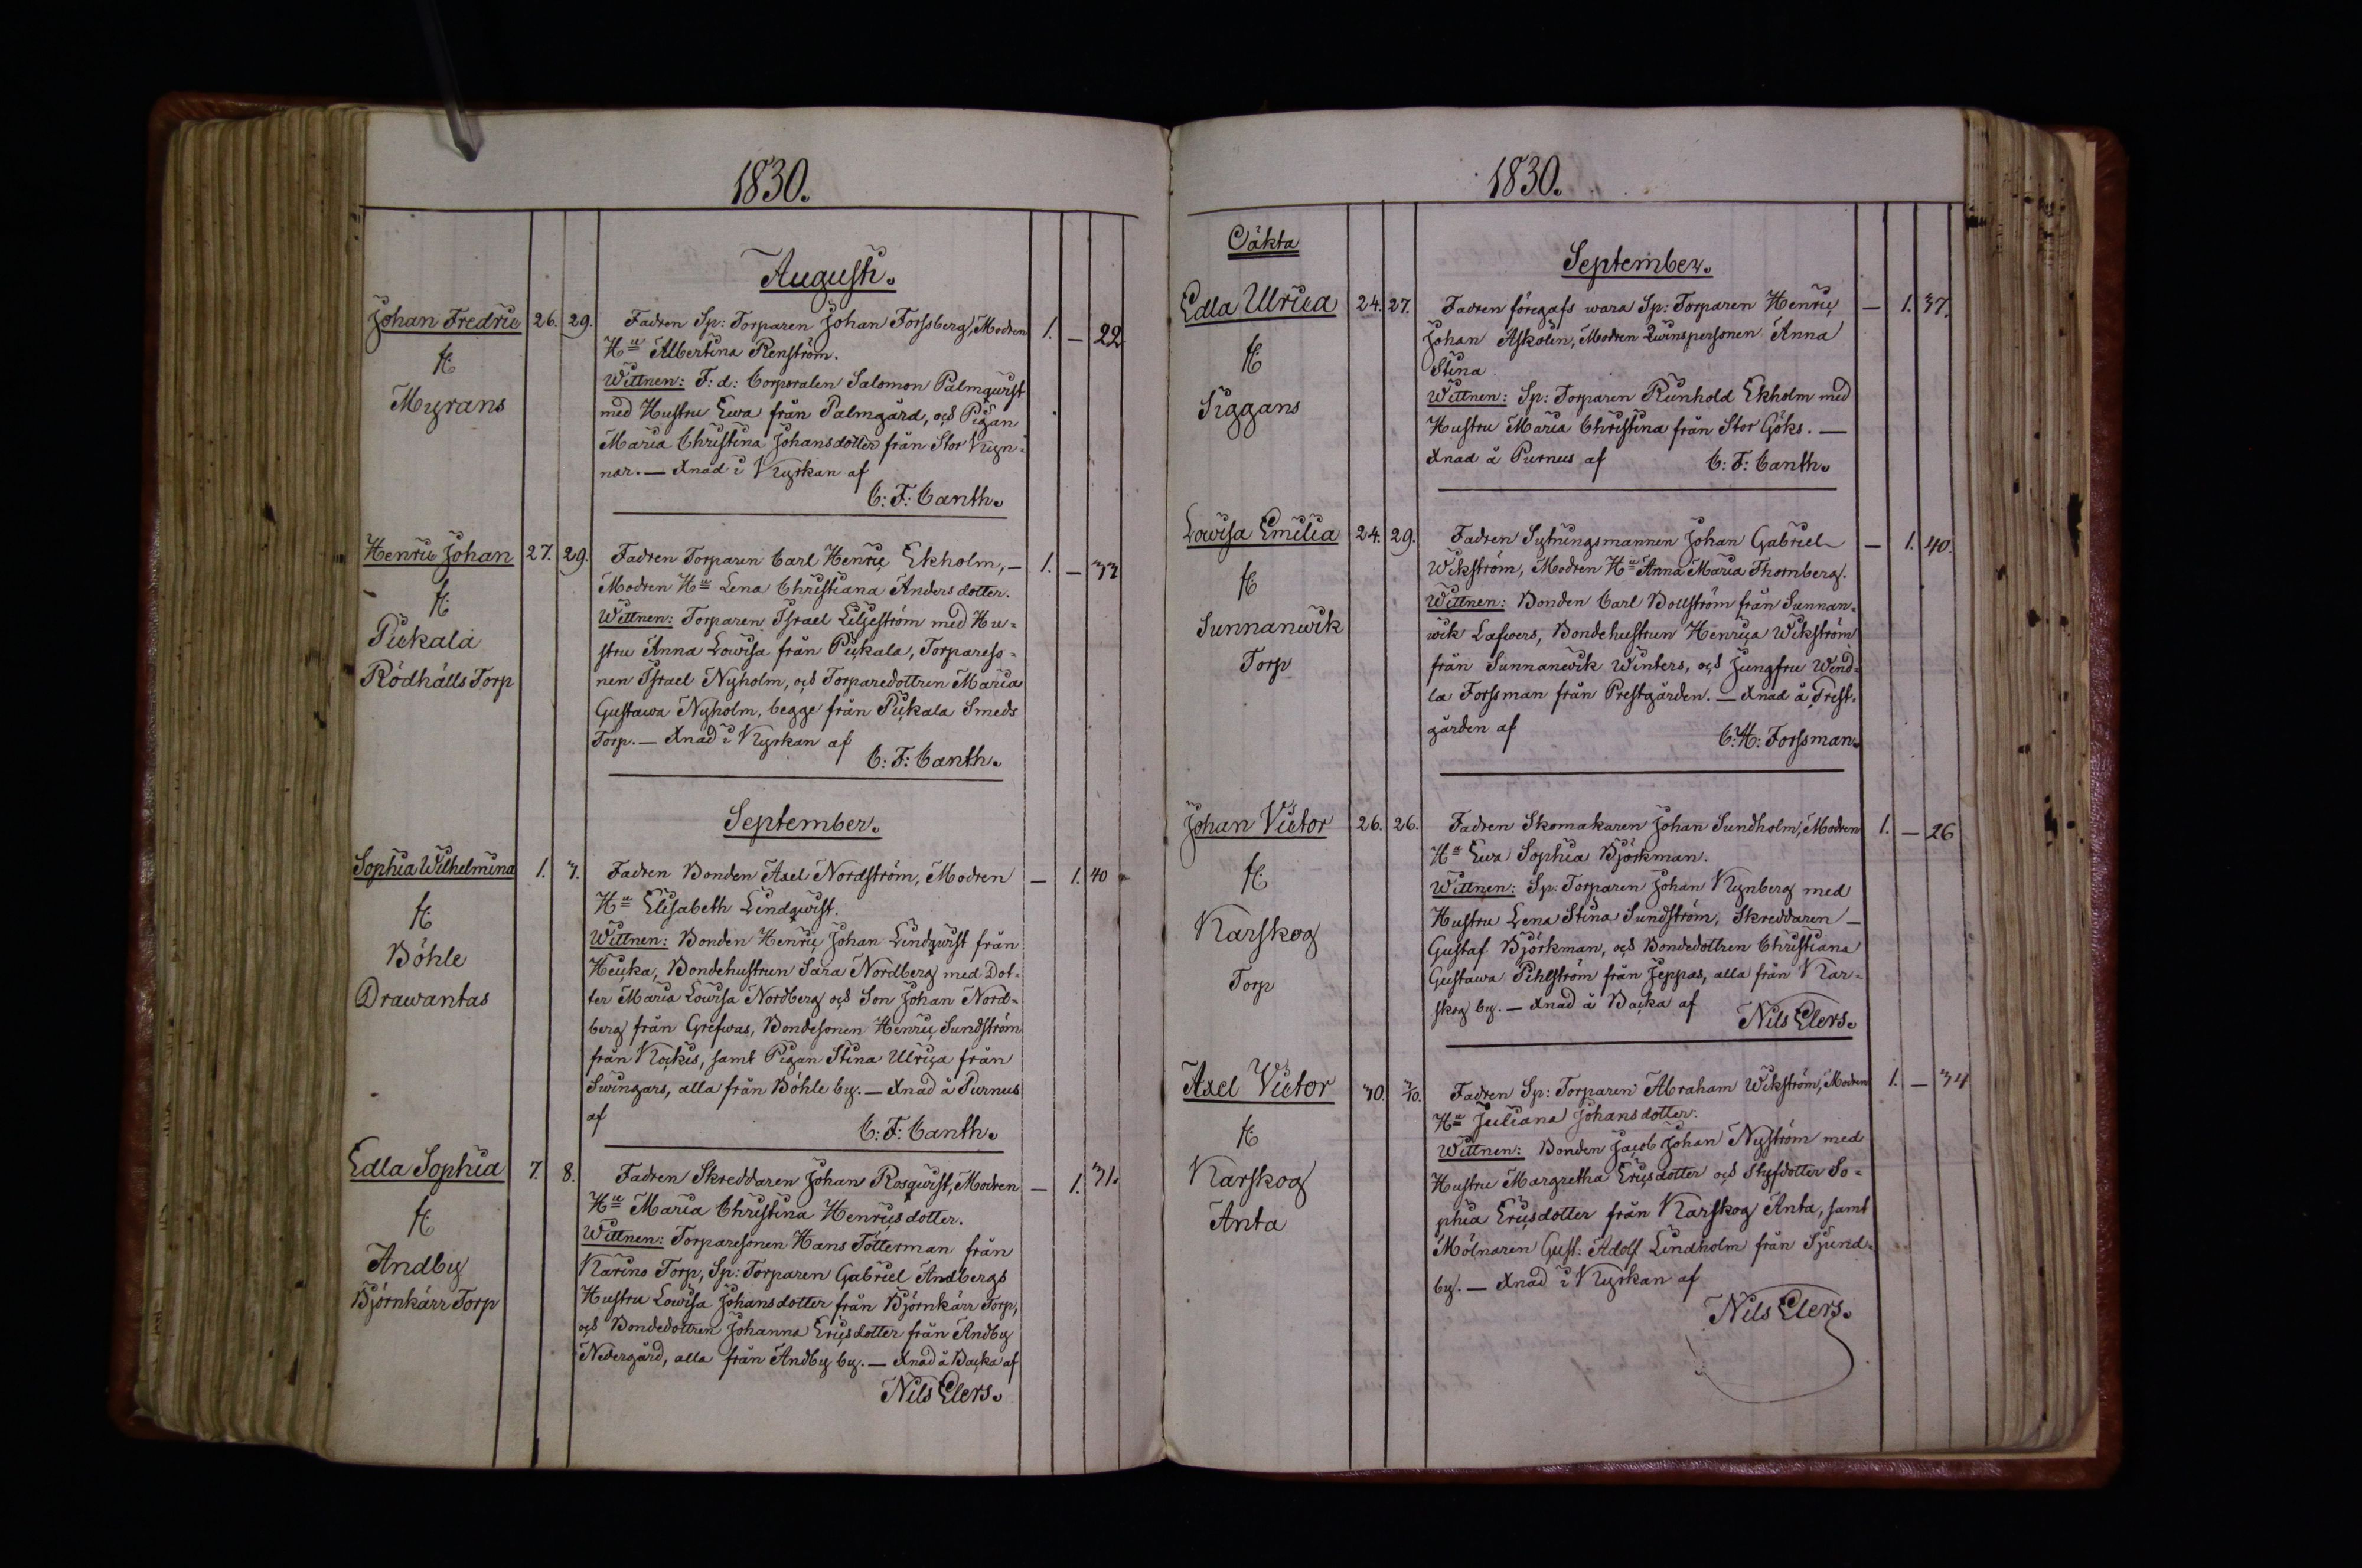 1830.
Augusti.
Johan Fredric 26. 29. Fadren Sp: Torparen Johan Forssberg, Modren 1. — 22
fr: Hu Albertina Renström.
Myrans Wittnen: F: d: Corporalen Salomon Palmqwist
med Hustru Ewa från Palmgård, och Pigan
Maria Christina Johansdotter från Stor Kyn-
nar. — Xnad i Kyrkan af
C: F: Canth.
Henric Johan 27. 29. Fadren Torparen Carl Henric Ekholm, — 1. — 33
fr: Modren Hu Lena Christiana Andersdotter.
Pickala Wittnen: Torparen Israel Liljeström med Hu-
Rödhälls Torp stru Anna Lowisa från Pickala, Torpareso-
nen Israel Nyholm, och Torparedottren Maria
Gustawa Nyholm, begge från Pickala Smeds
Torp. — Xnad i Kyrkan af
C: F: Canth.
September.
Sophia Wilhelmina 1. 3. Fadren Bonden Axel Nordström, Modren — 1. 40
fr: Hu Elisabeth Lindqwist.
Böhle Wittnen: Bonden Henric Johan Lindqwist från
Drawantas Heuka, Bondehustrun Sara Nordberg med Dot-
ter Maria Lowisa Nordberg och Son Johan Nord-
berg från Grefwas, Bondesonen Henric Sundström
från Kockis, samt Pigan Stina Ulrica från
Swingars, alla från Böhle by. — Xnad å Purnus
af C: F: Canth.
Edla Sophia 7. 8. Fadren Skreddaren Johan Rosqwist, Modren — 1. 31.
fr: Hu Maria Christina Henricsdotter.
Andby Wittnen: Torparesonen Hans Tötterman från
Björnkärr Torp Karino Torp, Sp: Torparen Gabriel Andbergs
Hustru Lowisa Johansdotter från Björnkärr Torp,
och Bondedottren Johanna Ericsdotter från Andby
Nedergård, alla från Andby by. — Xnad å Backa af
Nils Elers.
1830.
Oäkta
September.
Edla Ulrica 24. 27. Fadren föregafs wara Sp: Torparen Henric — 1. 37.
fr: Johan Askolin, Modren Qwinspersonen Anna
Siggans Stina
Wittnen: Sp: Torparen Reinhold Ekholm med
Hustru Maria Christina från Stor Göks. —
Xnad å Purnus af C: F: Canth.
Lowisa Emilia 24. 29. Fadren Sytningsmannen Johan Gabriel — 1. 40.
fr: Wikström, Modren Hu Anna Maria Thornberg.
Sunnanwik Wittnen: Bonden Carl Bollström från Sunnan-
Torp wik Lafwers, Bondehustrun Henrica Wikström
från Sunnanwik Winters, och Jungfru Wend-
la Forssman från Prestgården. — Xnad å Prest-
gården af C: H: Forssman.
Johan Victor 26. 26. Fadren Skomakaren Johan Sundholm, Modren 1. — 26
fr: Hu Ewa Sophia Björkman.
Karskog Wittnen: Sp: Torparen Johan Kynberg med
Torp Hustru Lena Stina Sundström, Skreddaren —
Gustaf Björkman, och Bondedottren Christiana
Gustawa Pihlström från Jeppas, alla från Kar-
skog by. — Xnad å Backa af
Nils Elers.
Axel Victor 30. 3/10. Fadren Sp: Torparen Abraham Wikström, Modren 1. — 34
fr: Hu Juliana Johansdotter.
Karskog Wittnen: Bonden Jacob Johan Nyström med
Anta Hustru Margretha Ericsdotter och Styfdotter So-
phia Ericsdotter från Karskog Anta, samt
Mölnaren Gust: Adolf Lindholm från Sjund-
by. — Xnad i Kyrkan af
Nils Elers.